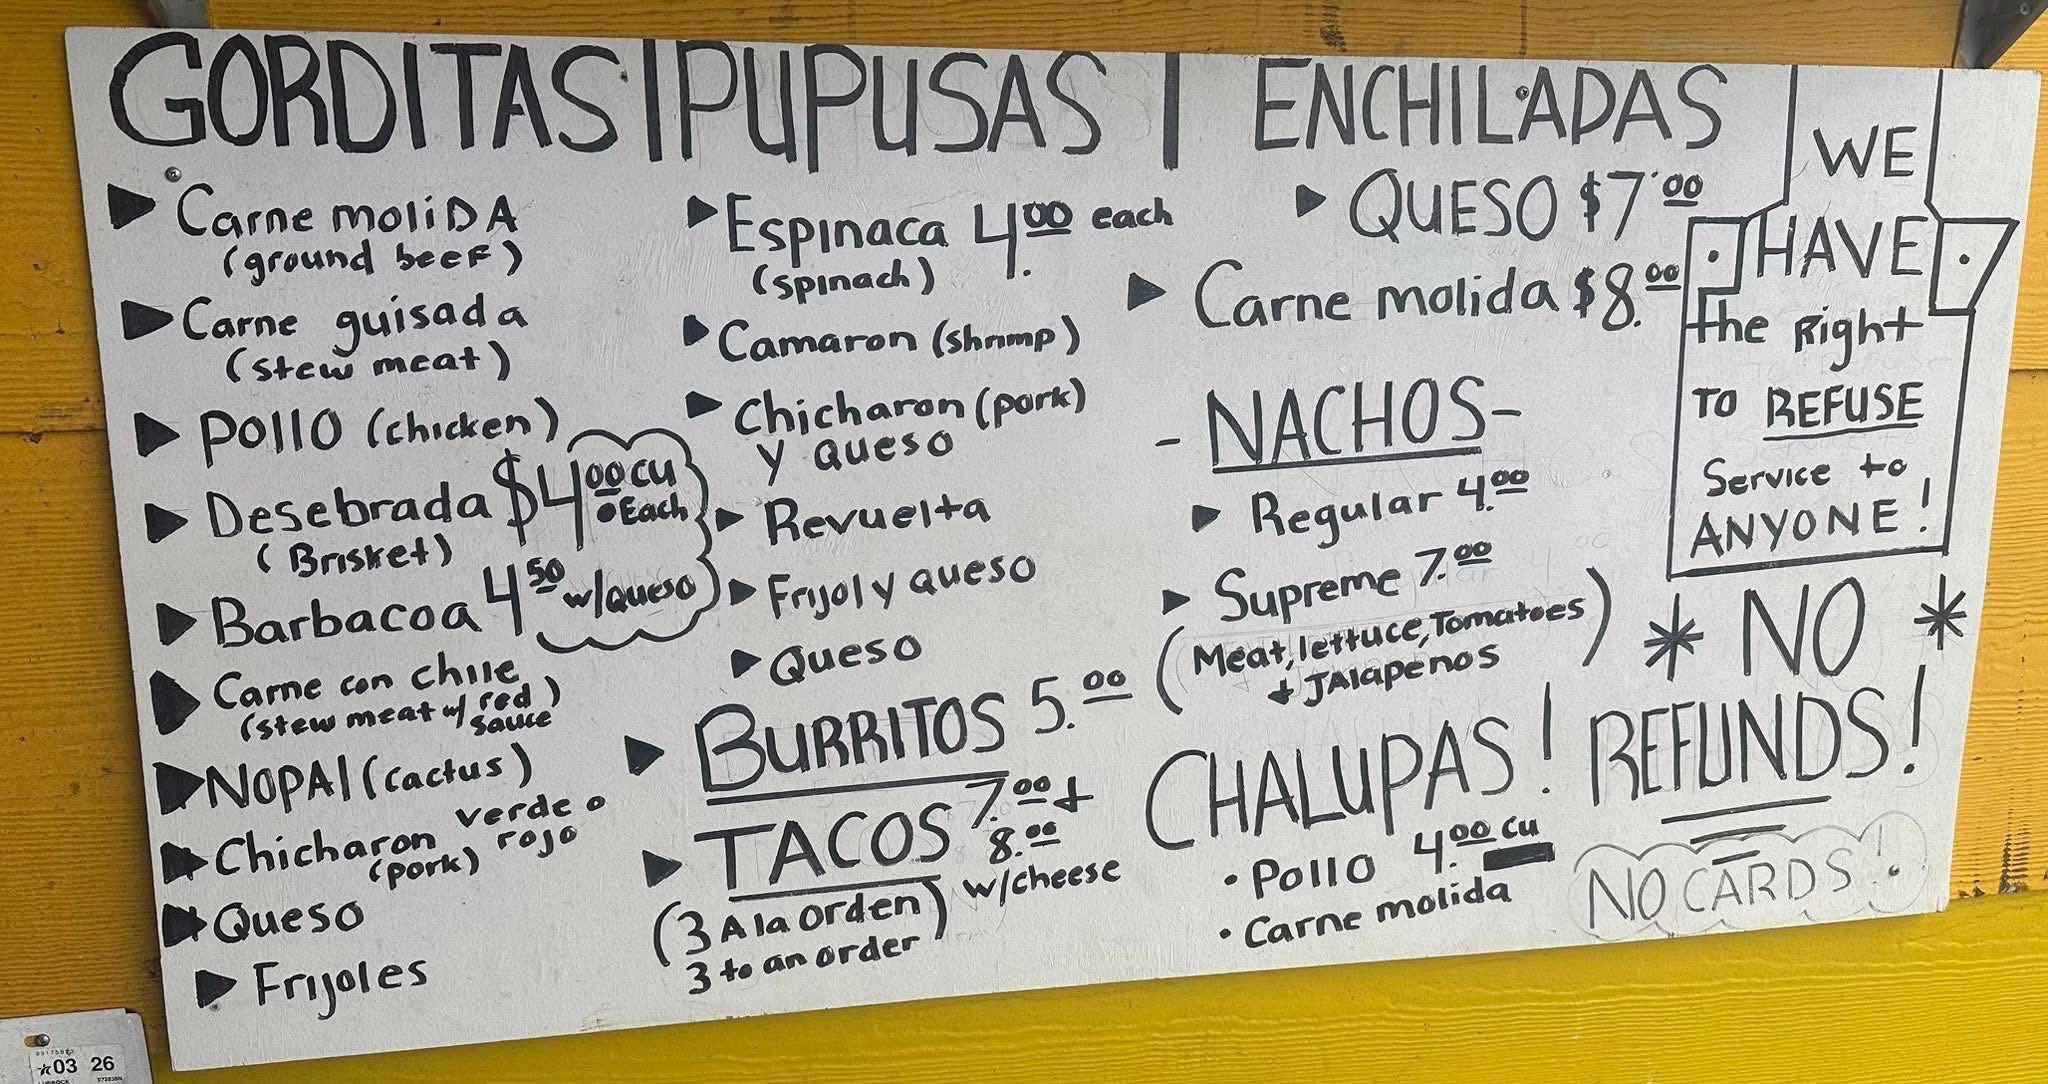 GORDITAS | PUPUSAS | ENCHILADAS
Carne moliDA
(ground beef)
Carne guisada
(stew meat)
POllO (chicken)
Desebrada $4.00 cu
• Each
(Brisket)
Barbacoa 4.50 w/queso
Carne con chile
(stew meat w/ red
sauce)
NOPAl (cactus)
Chicharon verde o
(pork) rojo
Queso
Frijoles
Espinaca 4.00 each
(spinach)
Camaron (shrimp)
Chicharon (pork)
y queso
Revuelta
Frijol y queso
Queso
BURRITOS 5.00
TACOS 7.00 +
8.00
w/cheese
(3 A la orden)
3 to an order
QUESO $7.00
Carne molida $8.00
- NACHOS -
Regular 4.00
Supreme 7.00
(Meat, lettuce, Tomatoes
+ JAlapenos)
CHALUPAS!
• Pollo 4.00 cu
• Carne molida
WE
HAVE
the Right
TO REFUSE
Service to
ANYONE!
* NO *
REFUNDS!
NO CARDS!
03 26